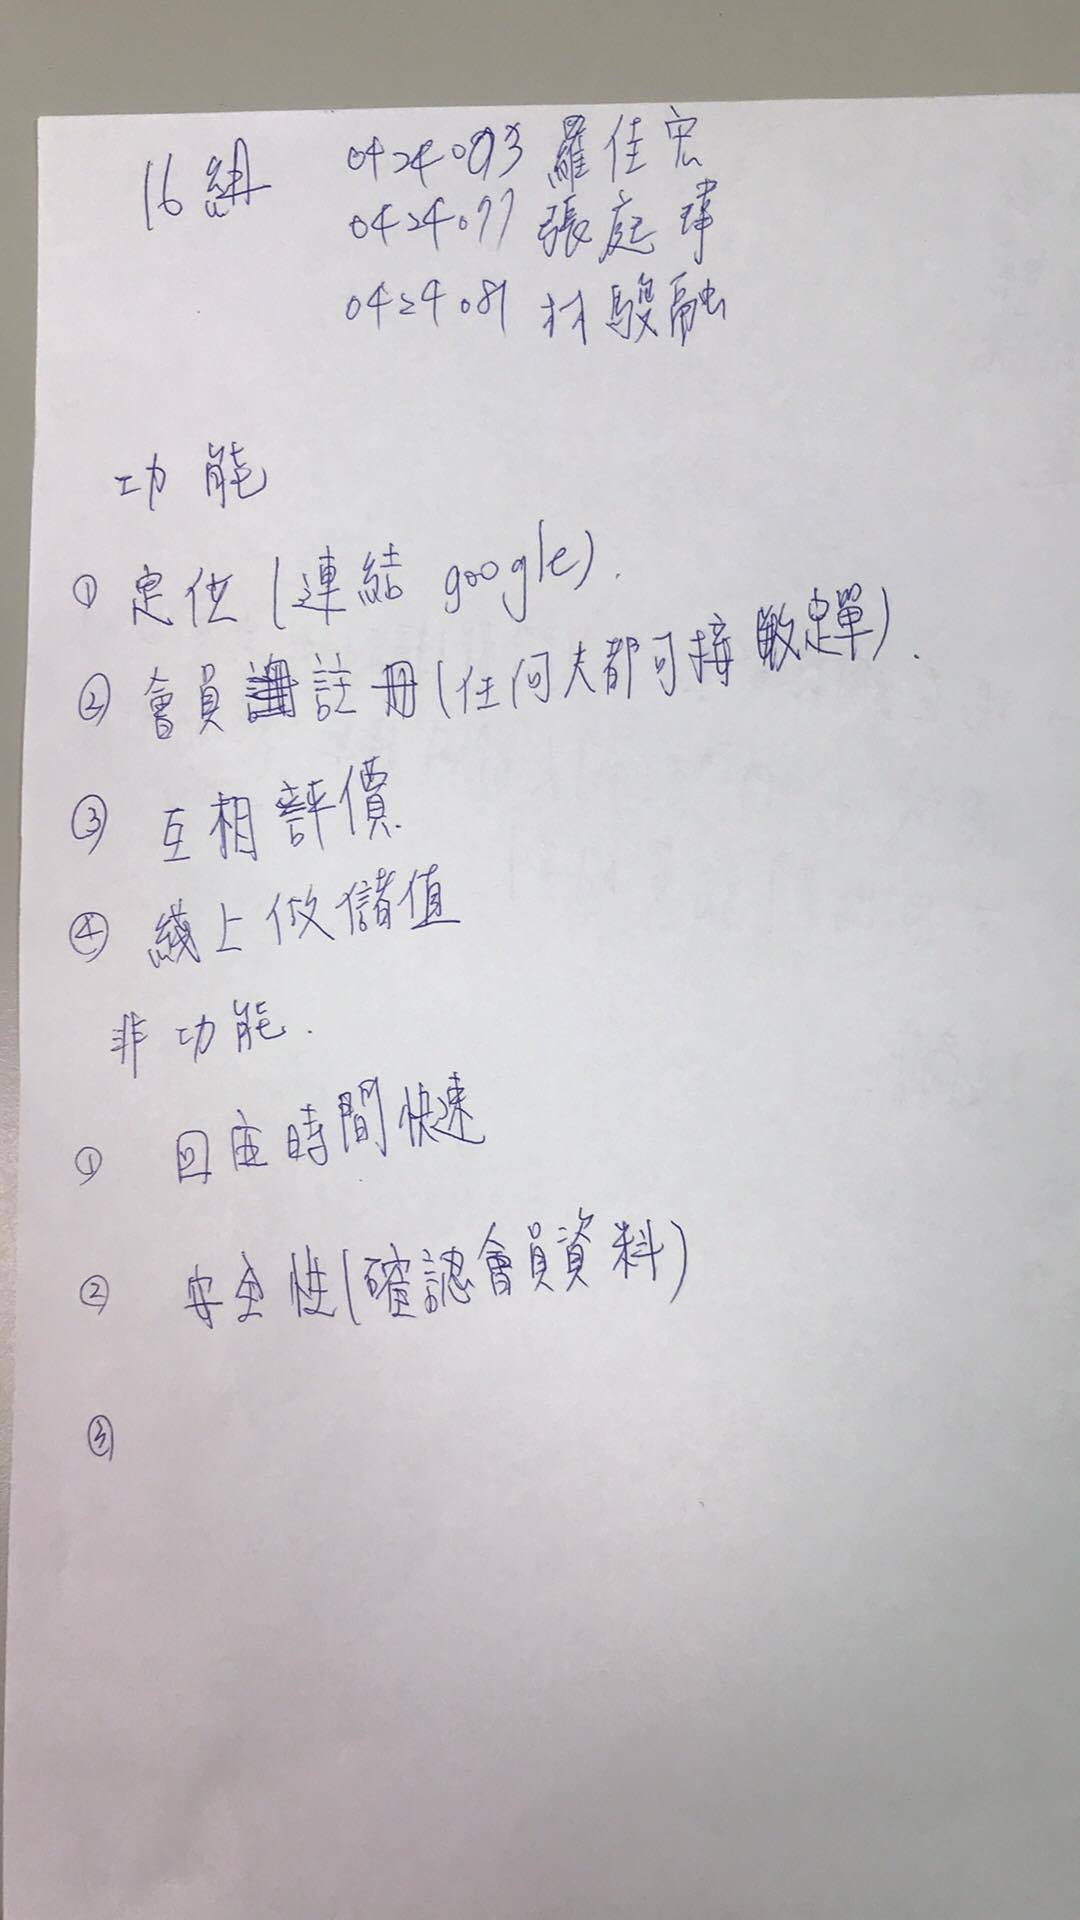 16組 0424093 羅佳宏
0424077 張庭瑋
0424081 林駿融
功能
① 定位(連結 google).
② 會員註冊(任何人都可接收定單).
③ 互相評價.
④ 綫上做儲值
非功能.
① 回应時間快速
② 安全性(確認會員資料)
③